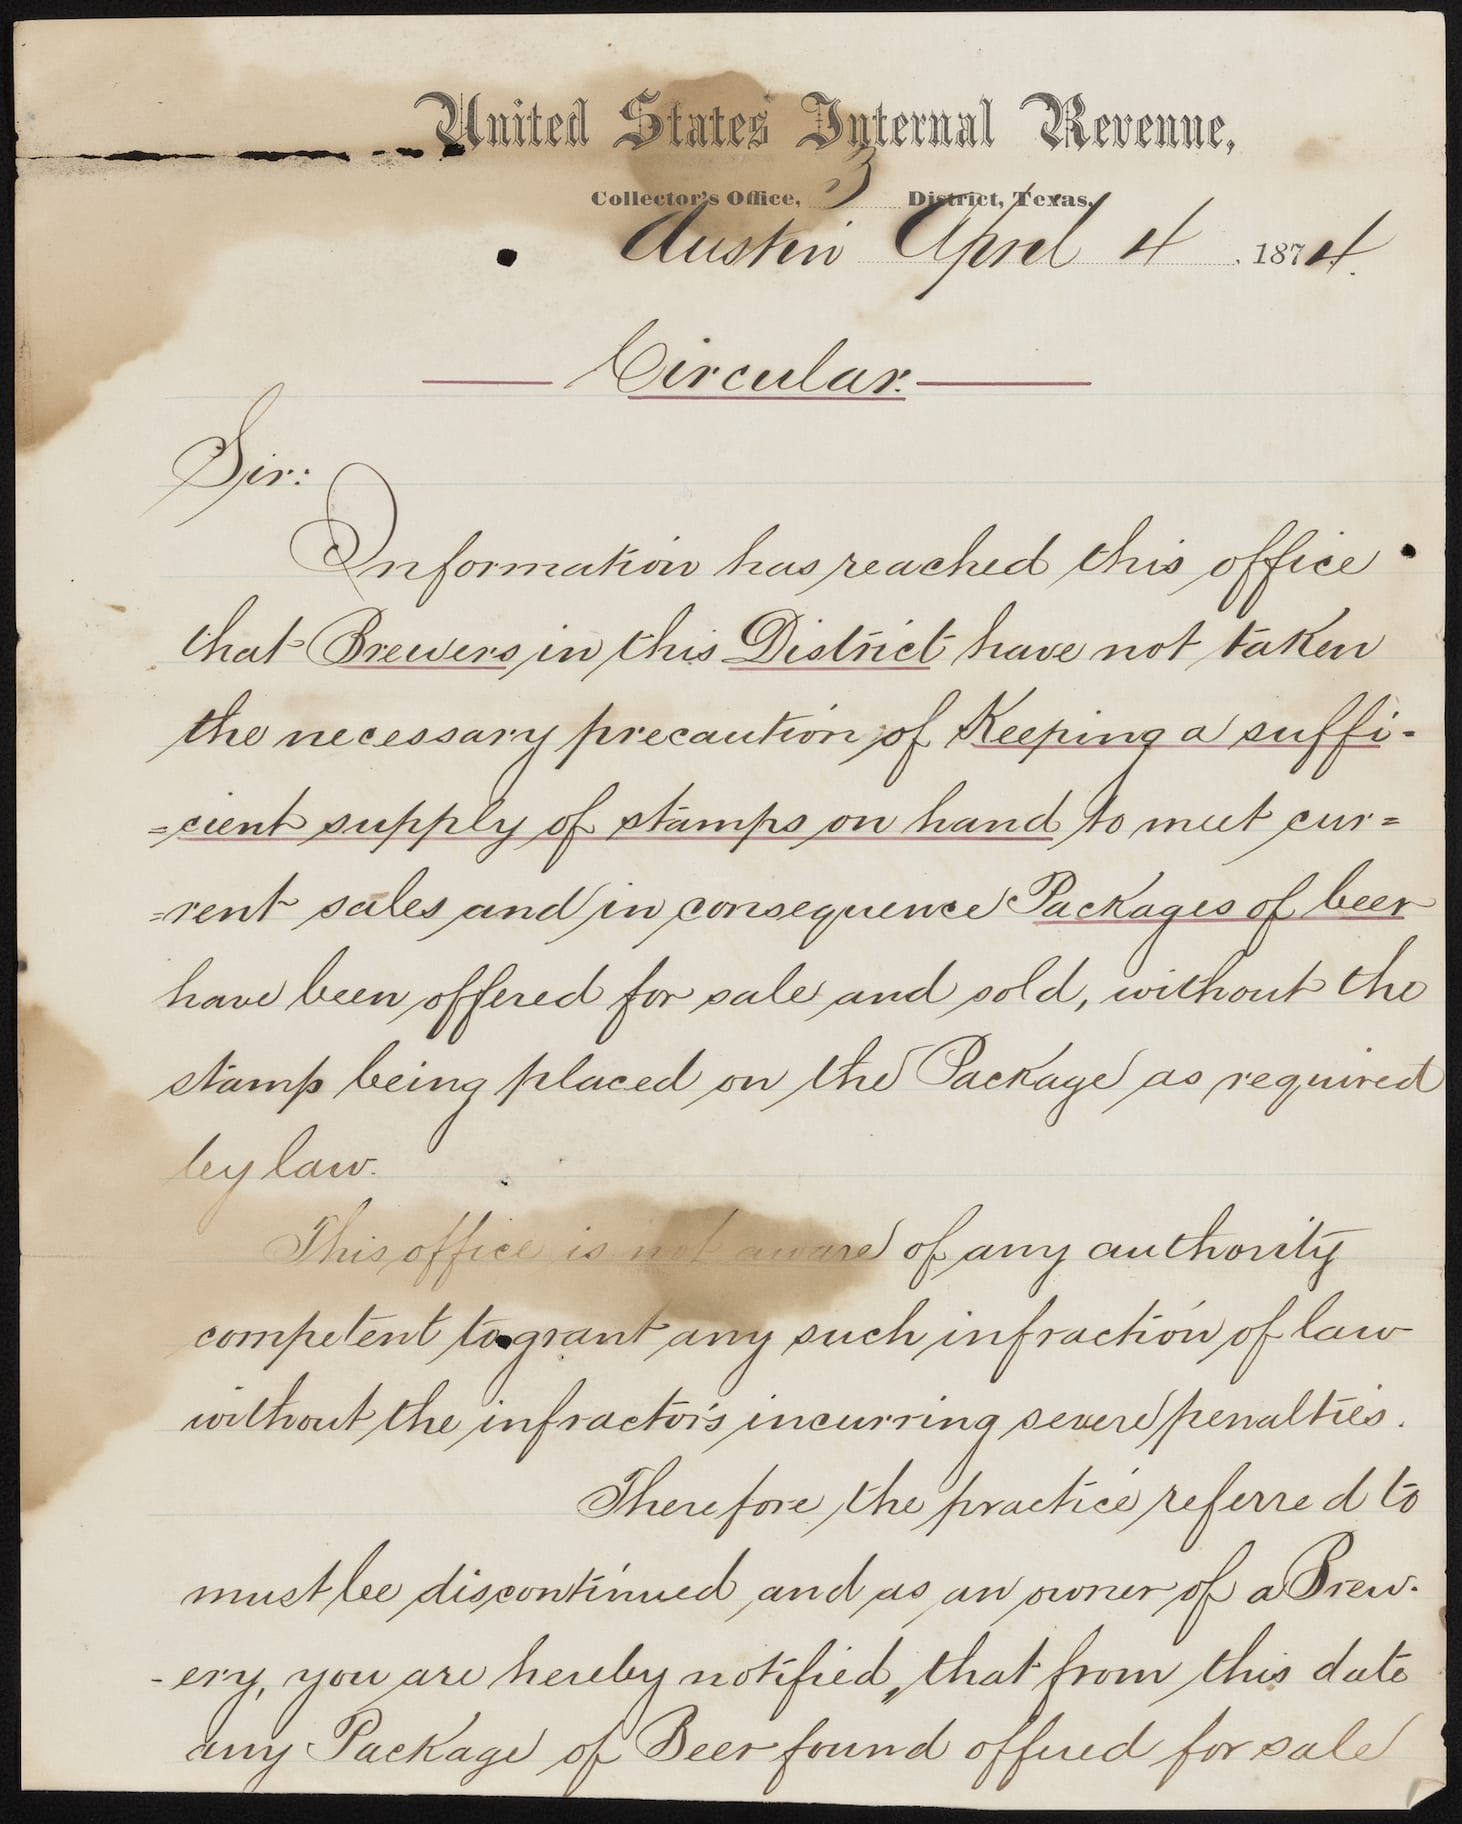 United States Internal Revenue,
Collector's Office, 3 District, Texas,
Austin April 4 1874.
Circular.
Sir:
Information has reached this office
that Brewers in this District have not taken
the necessary precaution of Keeping a suffi-
=cient supply of stamps on hand to meet cur=
=rent sales and in consequence Packages of beer
have been offered for sale and sold, without the
stamp being placed on the Package as required
by law.
This office is not aware of any authority
competent to grant any such infraction of law
without the infractors incurring severe penalties.
Therefore the practice referred to
must be discontinued and as an owner of a Brew-
-ery, you are hereby notified, that from this date
any Package of Beer found offered for sale